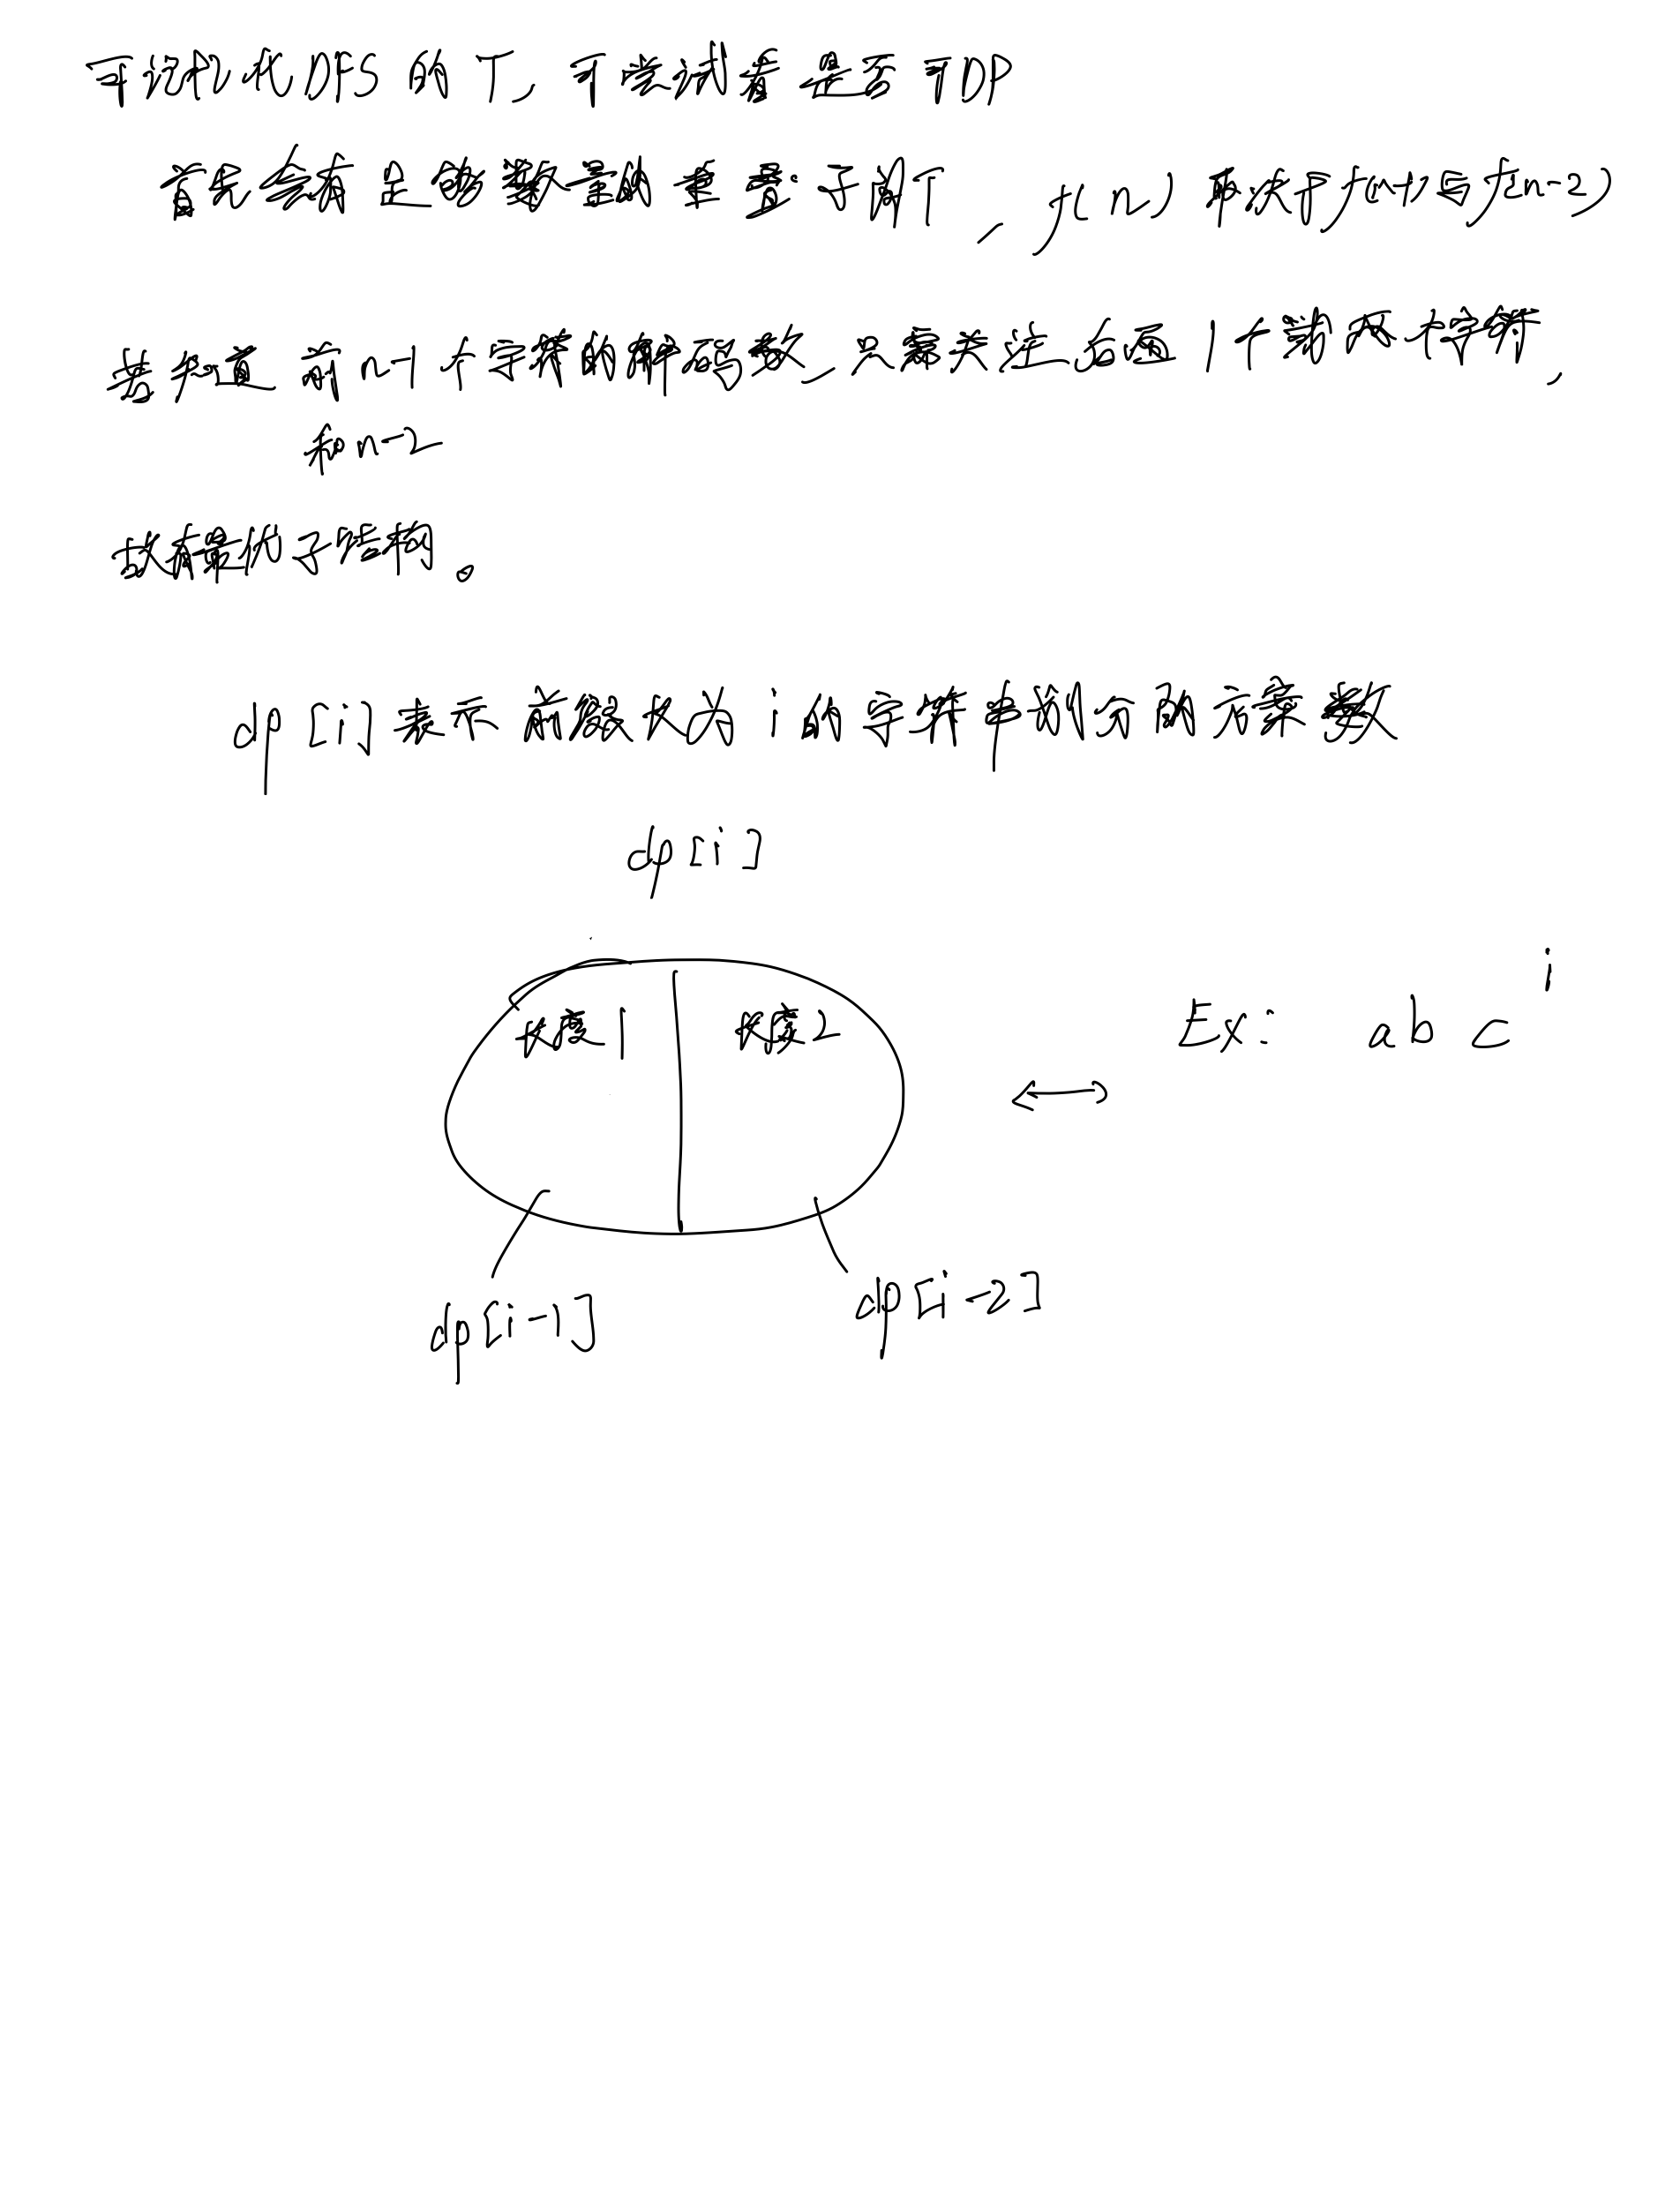 可记忆化DFS的T, 可尝试看是否可DP
首先会有足够数量的重叠子问T, f(n)取决于f(n-1)与f(n-2)
若知道前n-1个字符的解码数, 只需关注后面1个或两个字符,
和n-2
故有最优子结构。
dp[i]表示前缀长为i的字符串划分的方案数
dp[i]
i
长度1 长度2 Ex: ab c
dp[i-1] dp[i-2]